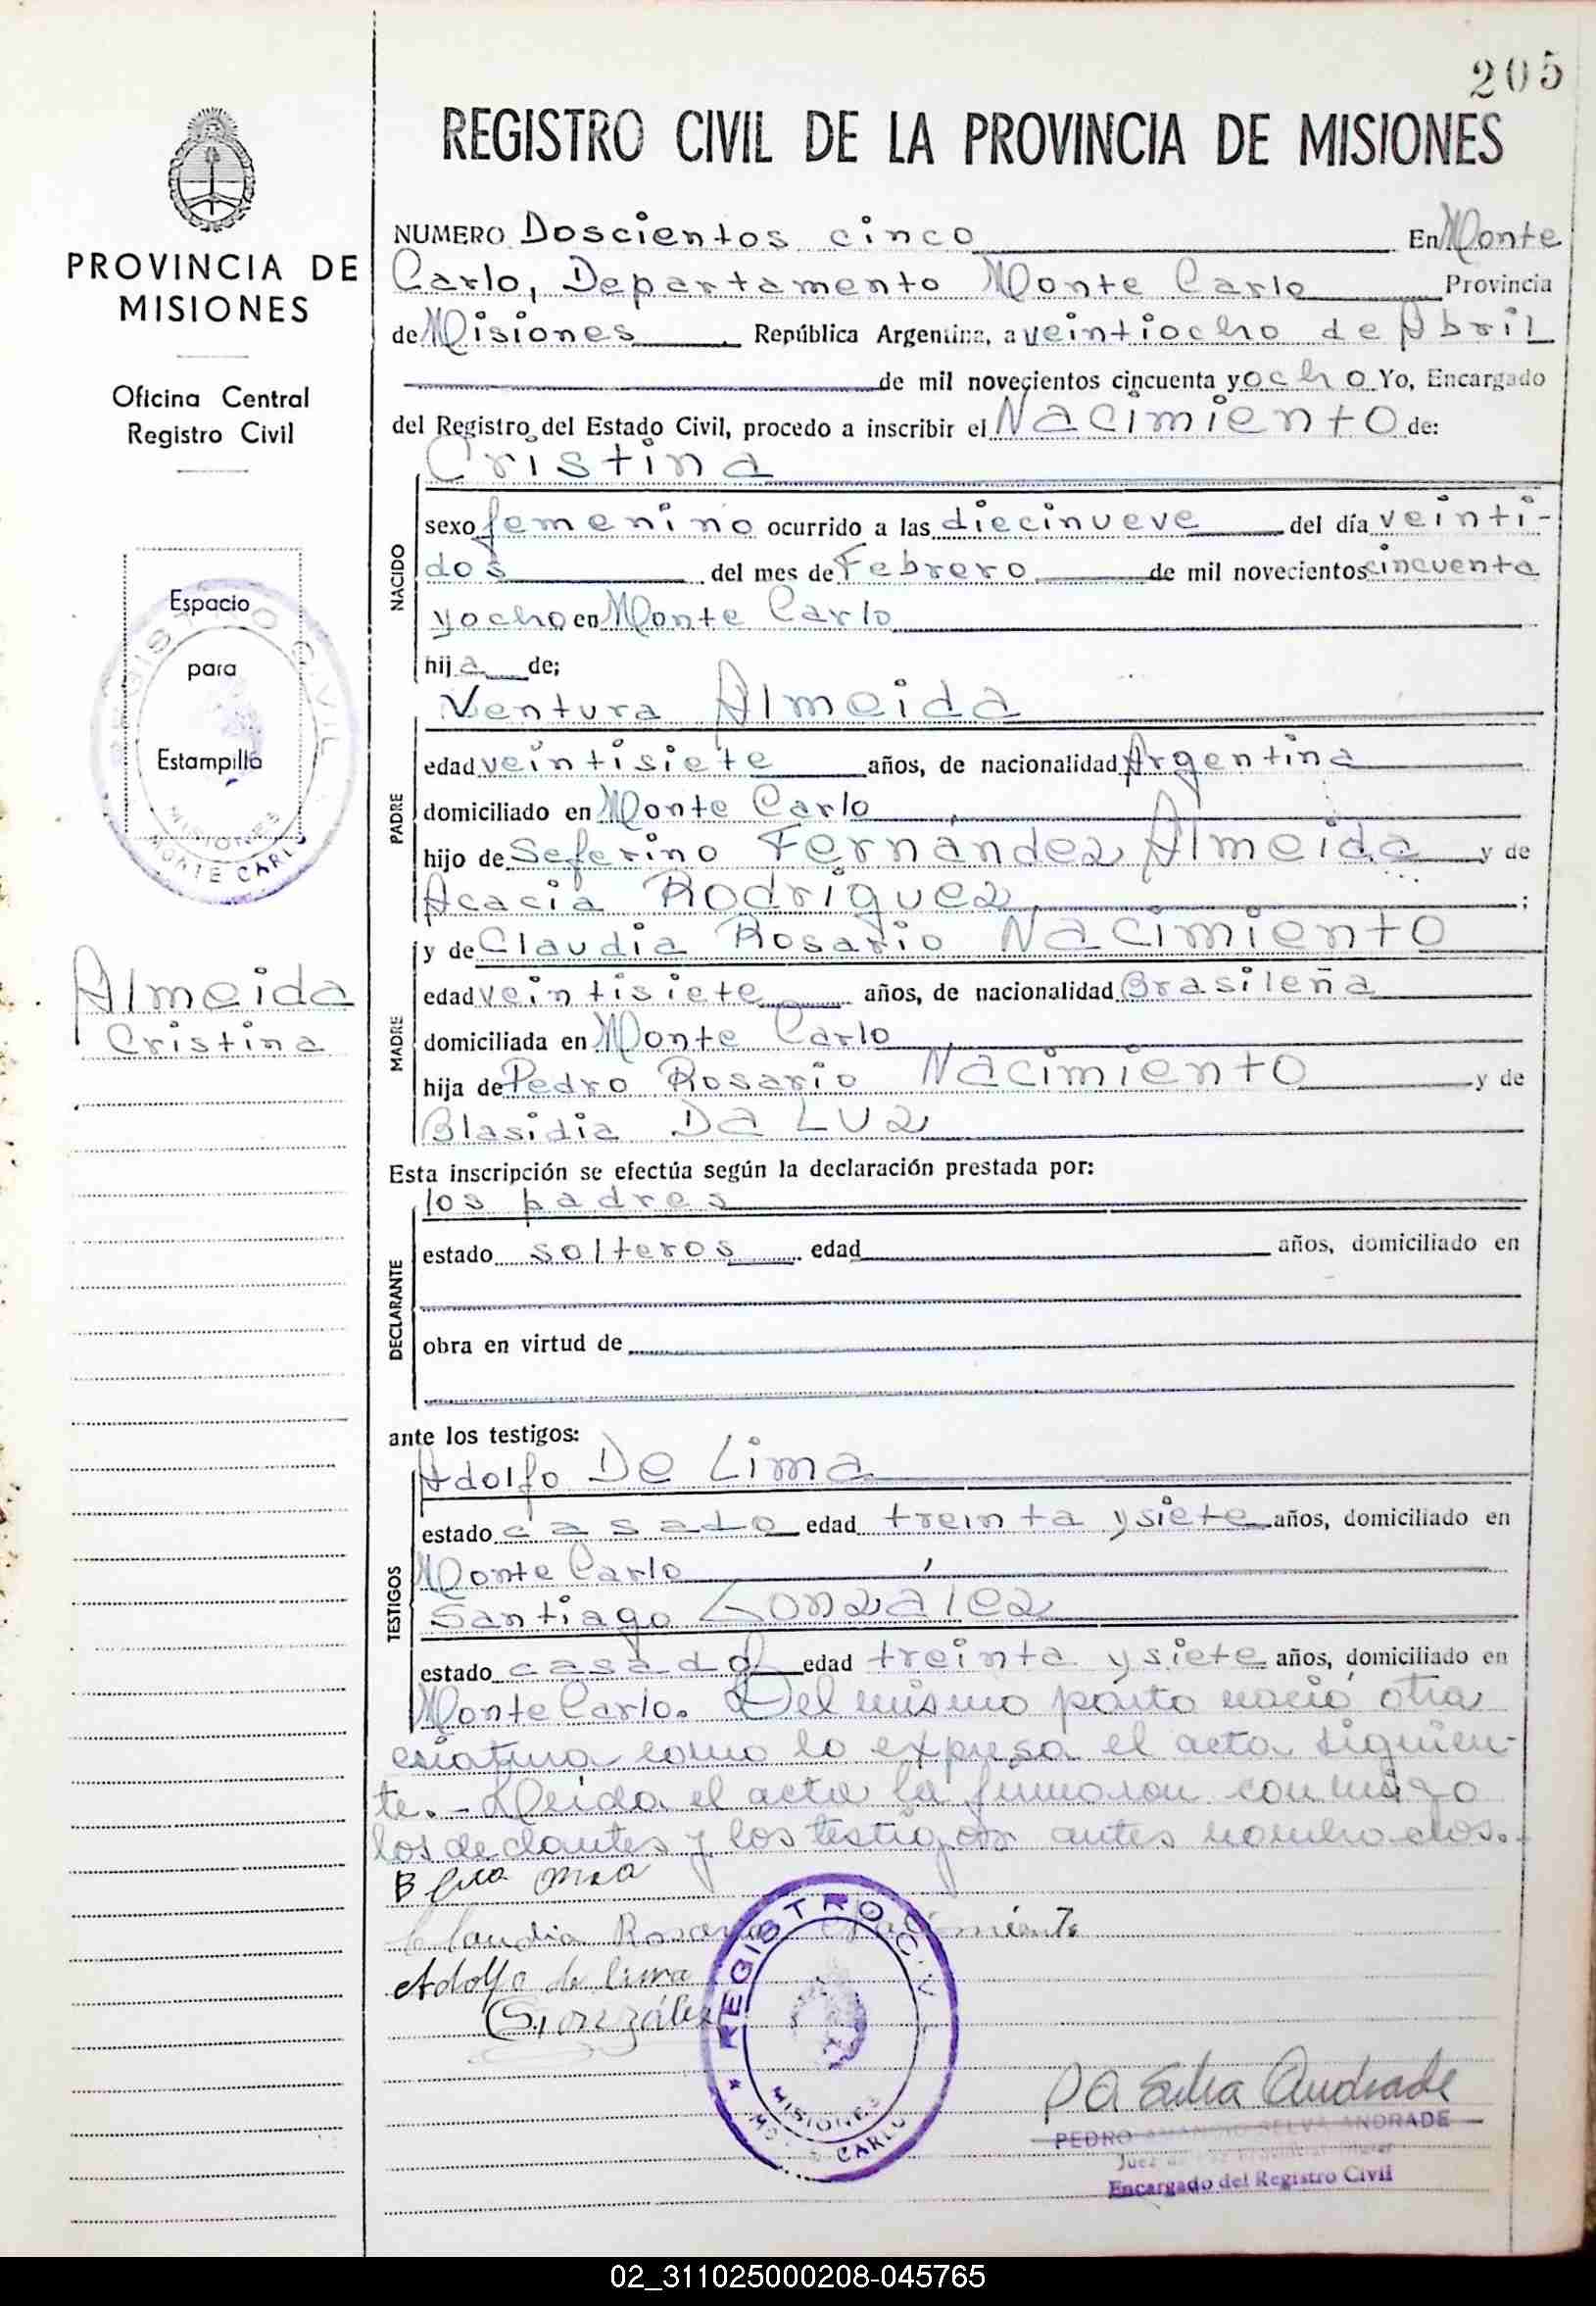 205
REGISTRO CIVIL DE LA PROVINCIA DE MISIONES
PROVINCIA DE
MISIONES
Oficina Central
Registro Civil
Espacio
para
Estampilla
REGISTRO CIVIL
MISIONES
MONTE CARLO
Almeida
Cristina
NUMERO Doscientos cinco En Monte
Carlo, Departamento Monte Carlo Provincia
de Misiones República Argentina, a veintiocho de Abril
de mil novecientos cincuenta y ocho Yo, Encargado
del Registro del Estado Civil, procedo a inscribir el Nacimiento de:
Cristina
NACIDO
sexo femenino ocurrido a las diecinueve del día veinti-
dos del mes de Febrero de mil novecientos cincuenta
y ocho en Monte Carlo
hija de;
Ventura Almeida
PADRE
edad veintisiete años, de nacionalidad Argentina
domiciliado en Monte Carlo
hijo de Seferino Fernández Almeida y de
Acacia Rodríguez ;
y de Claudia Rosario Nacimiento
MADRE
edad veintisiete años, de nacionalidad Brasileña
domiciliada en Monte Carlo
hija de Pedro Rosario Nacimiento y de
Blasidia Da Luz
Esta inscripción se efectúa según la declaración prestada por:
los padres
DECLARANTE
estado solteros edad años, domiciliado en
obra en virtud de
ante los testigos:
Adolfo De Lima
TESTIGOS
estado casado edad treinta y siete años, domiciliado en
Monte Carlo
Santiago González
estado casado edad treinta y siete años, domiciliado en
Monte Carlo. Del mismo parto nació otra
criatura como lo expresa el acta siguien-
te. - Leida el acta la firmaron conmigo
los declantes y los testigos antes nombrados. -
Claudia Rosario Nacimiento
Adolfo de lima
S. González
REGISTRO CIVIL
MISIONES
MONTE CARLO
PA Selva Andrade
PEDRO AMANCIO SELVA ANDRADE
Juez de Paz
Encargado del Registro Civil
02_311025000208-045765